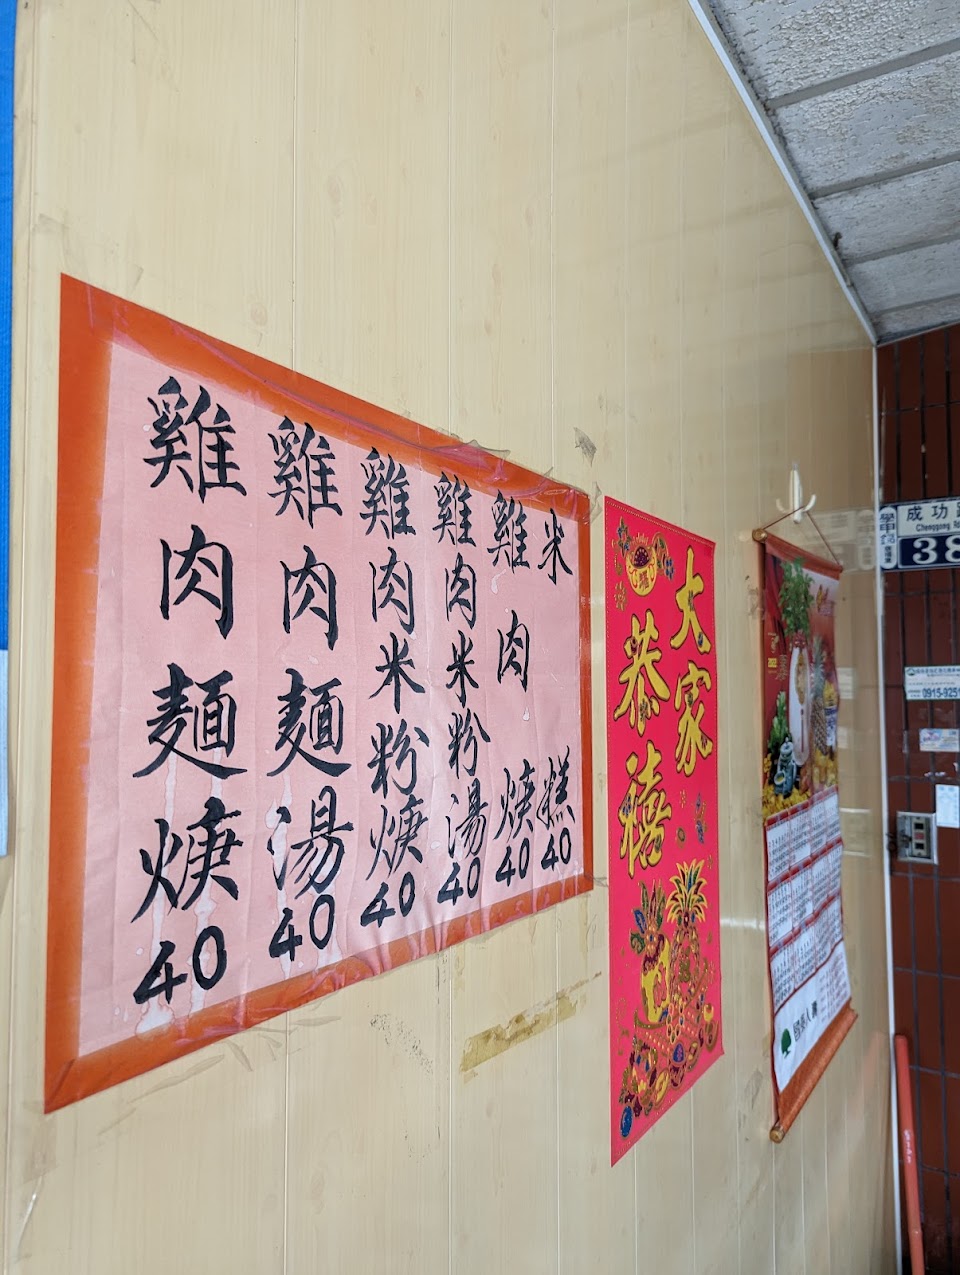 米糕40
雞肉焿40
雞肉米粉湯40
雞肉米粉焿40
雞肉麵湯40
雞肉麵焿40
大家
恭禧
國泰人壽
學甲
成功路
Chenggong
38
0915-9251